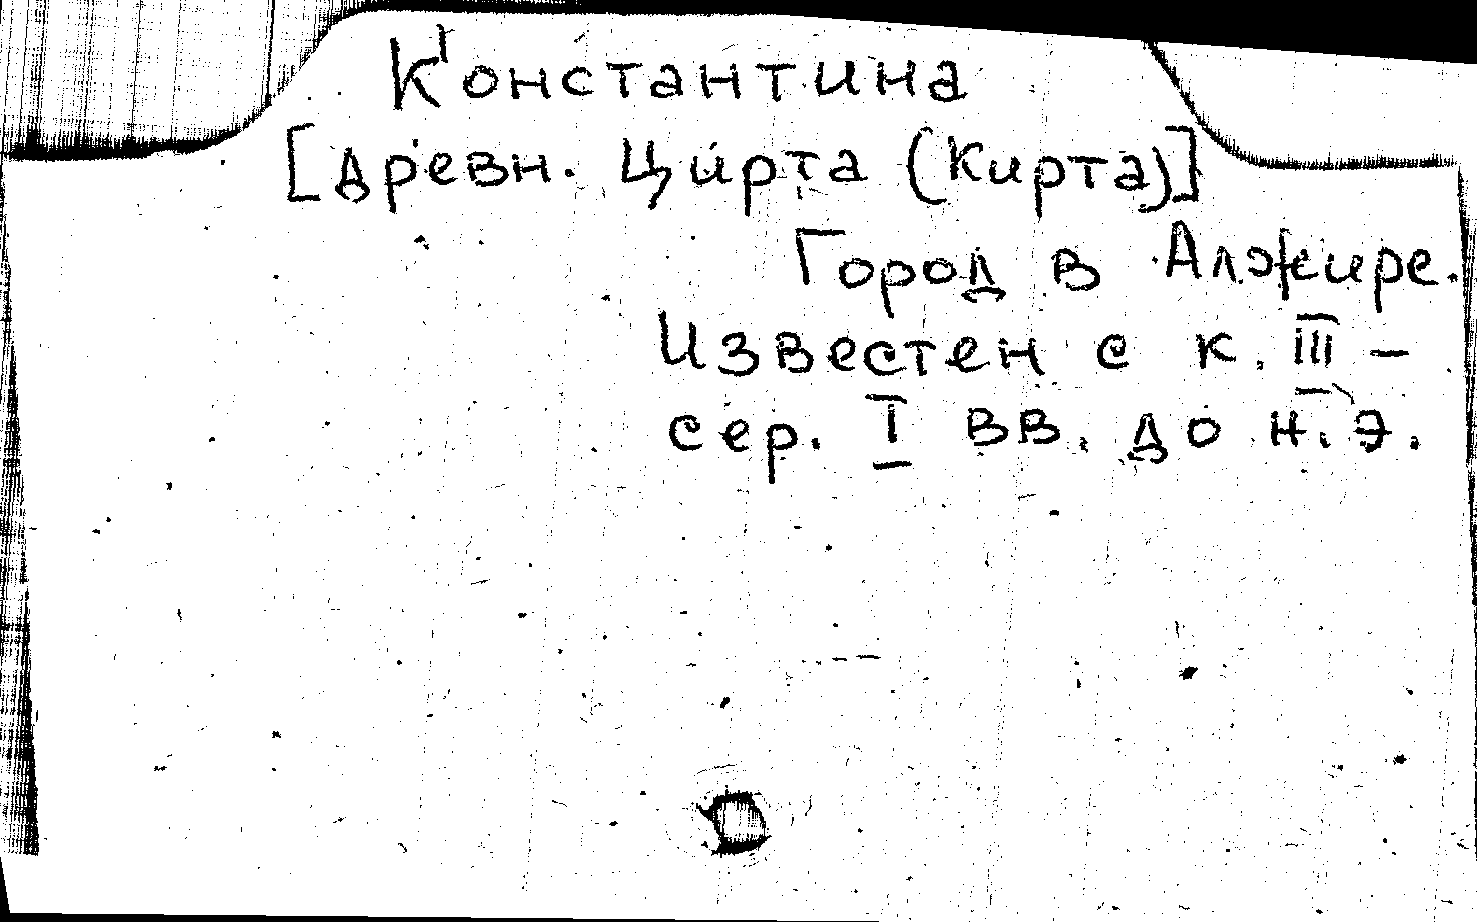 Константина
[древн. Цирта (Кирта)]
Город в Алжире.
Известен с к. III –
сер. I вв. до н. э.